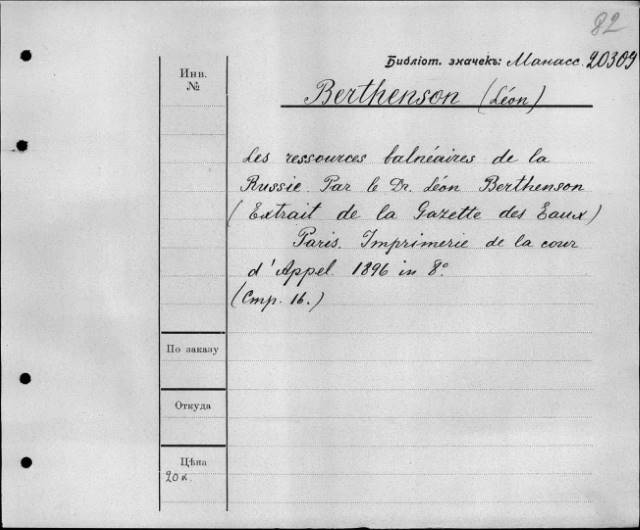 82
Библіот. значекъ: Манасс. 20309
Инв. №
Berthenson (Léon)
Les ressources balnéaires de la
Russie. Par le Dr. Léon Berthenson
(Extrait de la Gazette des Eaux)
Paris. Imprimerie de la cour
d'Appel. 1896 in 8°.
(Стр. 16.)
По заказу
Откуда
Цѣна
20 к.